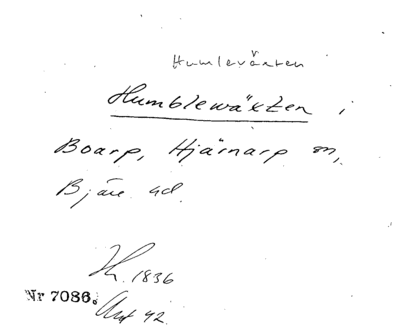 Humlevärten
Humblewäxten i
Boarp, Hjärnarp sn,
Bjäre hd.
1836
Nr 7086.
42